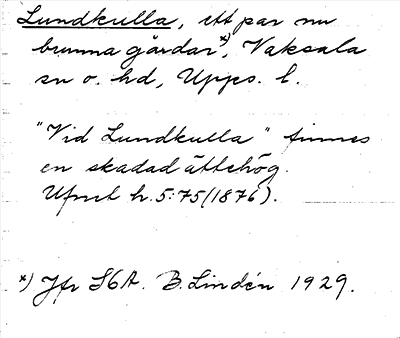 Lundkulla, ett par nu
bumma gårdar x), Vaksala
sn o. hd, Upps. l.
"Vid Lundkulla" finnes
en skadad ättehög.
Ufmt h. 5:75 (1876).
x) Jfr SGA. B. Lindén 1929.